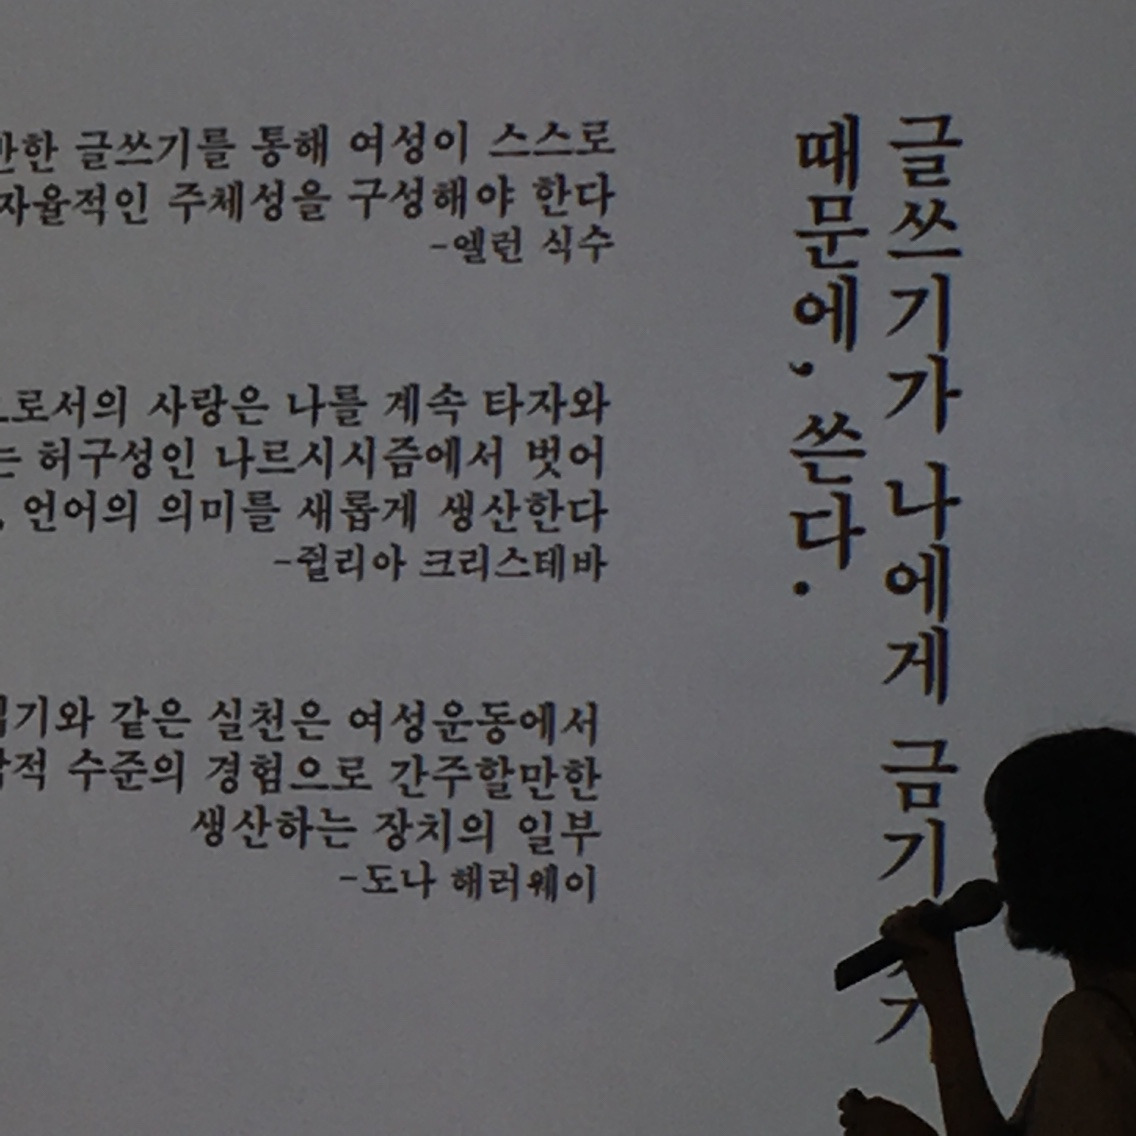 글쓰기가 나에게 금기
때문에, 쓴다.
글쓰기를 통해 여성이 스스로
자율적인 주체성을 구성해야 한다
-엘런 식수
사랑은 나를 계속 타자와
허구성인 나르시시즘에서 벗어
언어의 의미를 새롭게 생산한다
-쥘리아 크리스테바
같은 실천은 여성운동에서
수준의 경험으로 간주할만한
생산하는 장치의 일부
-도나 해러웨이